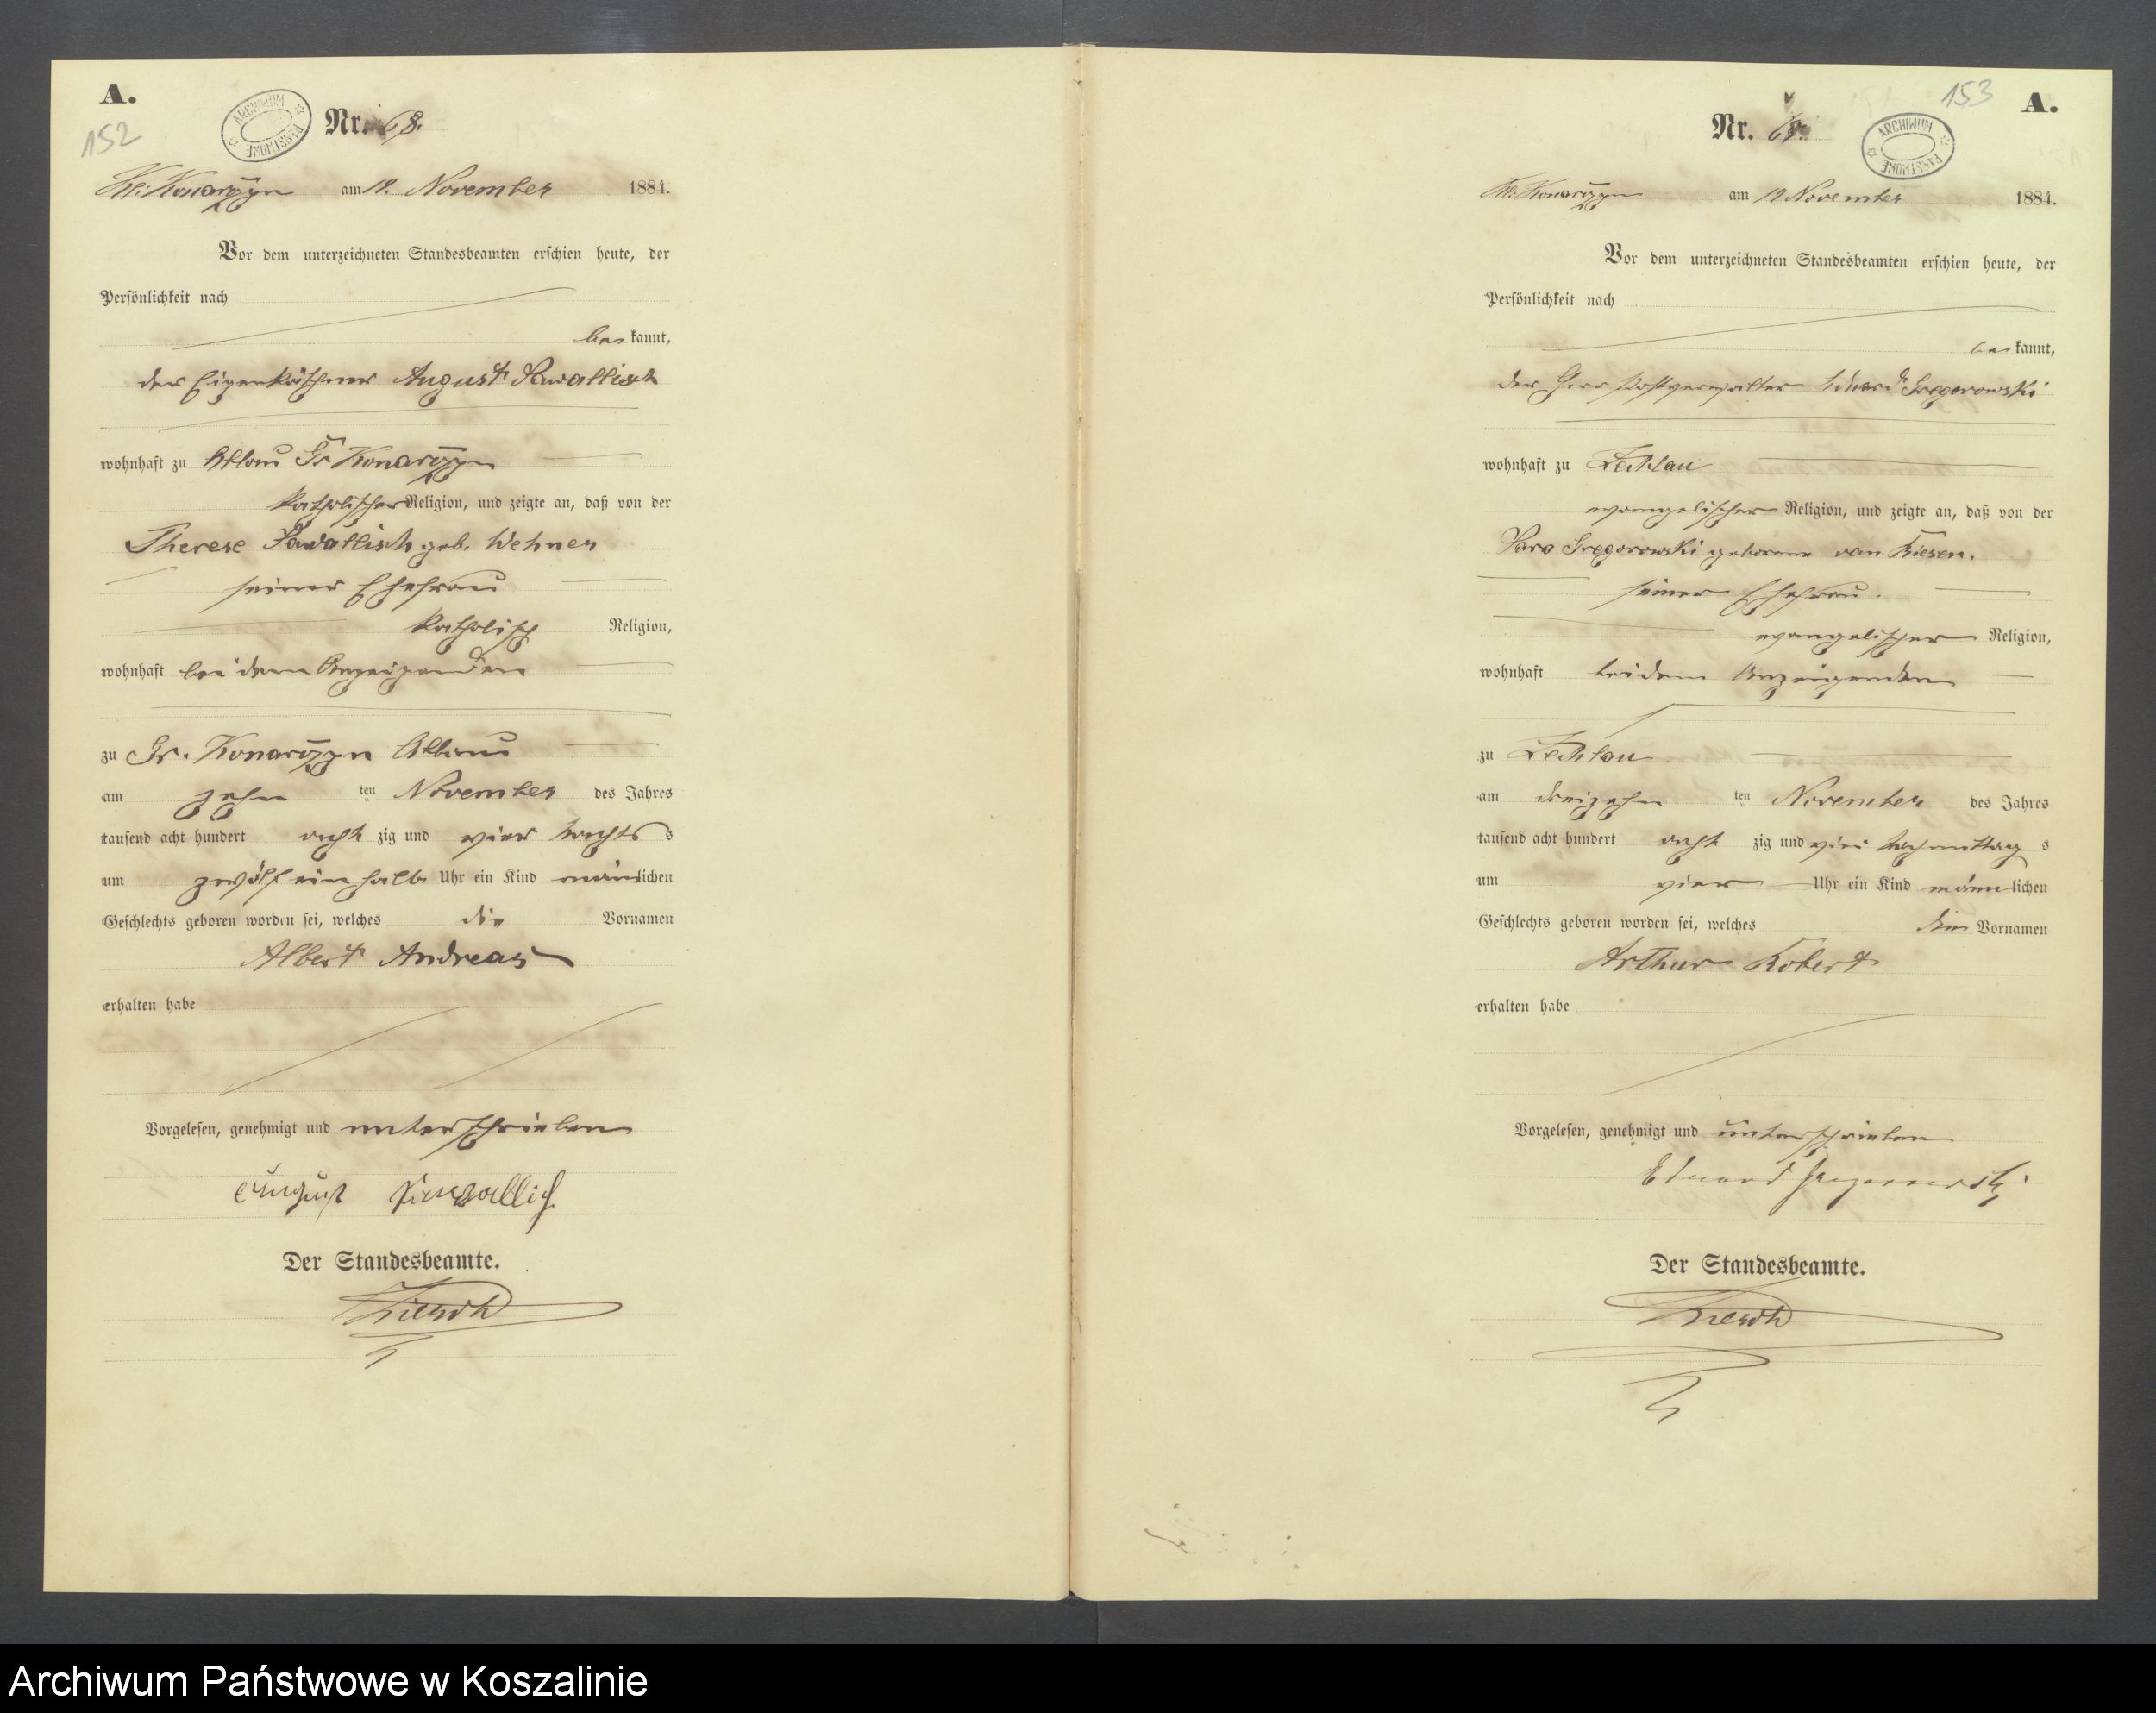 A.
152
ARCHIWUM PAŃSTWOWE
Nr. 68.
Kl. Konarczyn am 12. November 1884.
Vor dem unterzeichneten Standesbeamten erschien heute, der
Persönlichkeit nach
be kannt,
der Eigenkäthner August Sawallisch
wohnhaft zu Abbau Gr Konarczyn
katholischer Religion, und zeigte an, daß von der
Therese Sawallisch geb. Wehner
seiner Ehefrau
katholisch Religion,
wohnhaft bei dem Anzeigenden
zu Gr. Konarczyn Abbau
am zehn ten November des Jahres
tausend acht hundert acht zig und vier Nachts s
um zwölf ein halb Uhr ein Kind männlichen
Geschlechts geboren worden sei, welches die Vornamen
Albert Andreas
erhalten habe
Vorgelesen, genehmigt und unterschrieben
August Sawallisch
Der Standesbeamte.
153
A.
Nr.
ARCHIWUM PAŃSTWOWE
Kl. Konarczyn am 19 November 1884.
Vor dem unterzeichneten Standesbeamten erschien heute, der
Persönlichkeit nach
be kannt,
der Herr Postverwalter Eduard Gregorowski
wohnhaft zu Zechlau
evangelischer Religion, und zeigte an, daß von der
Sara Gregorowski geborene van Riesen.
seiner Ehefrau.
evangelischer Religion,
wohnhaft bei dem Anzeigenden
zu Zechlau
am dreizehn ten November des Jahres
tausend acht hundert acht zig und vier Nachmittag s
um vier Uhr ein Kind männlichen
Geschlechts geboren worden sei, welches die Vornamen
Arthur Robert
erhalten habe
Vorgelesen, genehmigt und unterschrieben
Eduard Gregorowski
Der Standesbeamte.
Archiwum Państwowe w Koszalinie